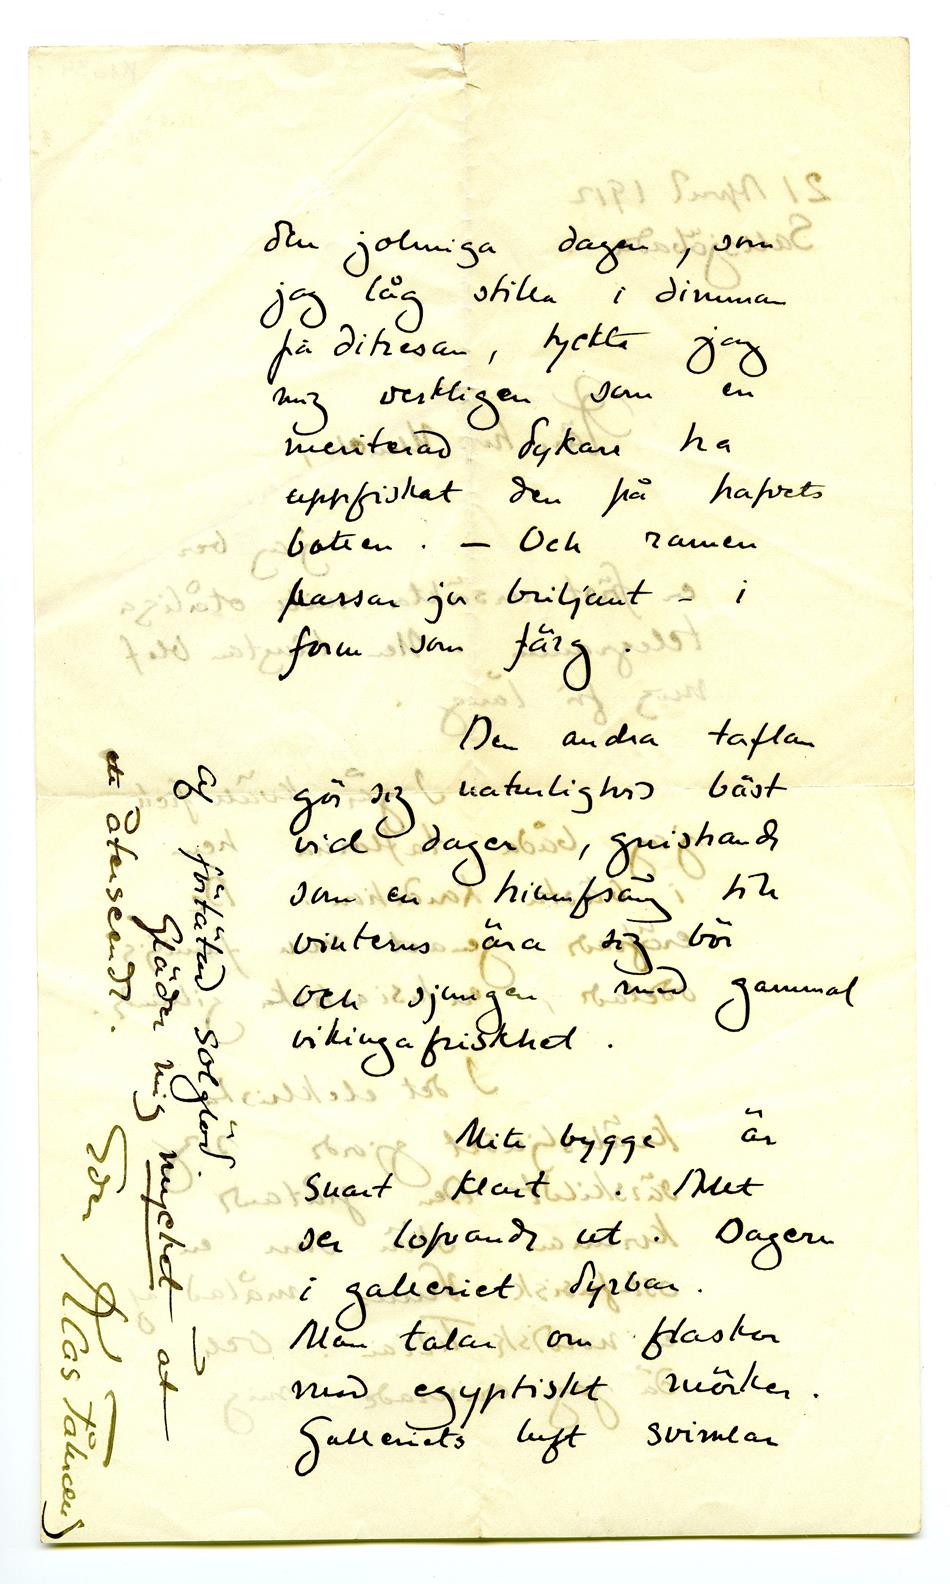 den jolmiga dagen, som
jag låg stilla i dimman
på ditresan, tyckte jag
mig verkligen som en
meriterad dykare ha
uppfiskat den på hafvets
botten. — Och ramen
passar ju briljant – i
form som färg.
Den andra taflan
gör sig naturligtvis bäst
vid dager, gnistrande
som en triumfsång till
vinterns ära sig bör
och sjungen med gammal
vikingafriskhet.
Mitt bygge är
snart klart. Det
ser lofvande ut. Dagern
i galleriet dyrbar.
Man talar om flaskor
med egyptiskt mörker.
Galleriets luft svimlar
af förtätad solglöd. —
Gläder mig mycket åt
ett återseende.
Eder
Klas Fåhræus
21 April 1912